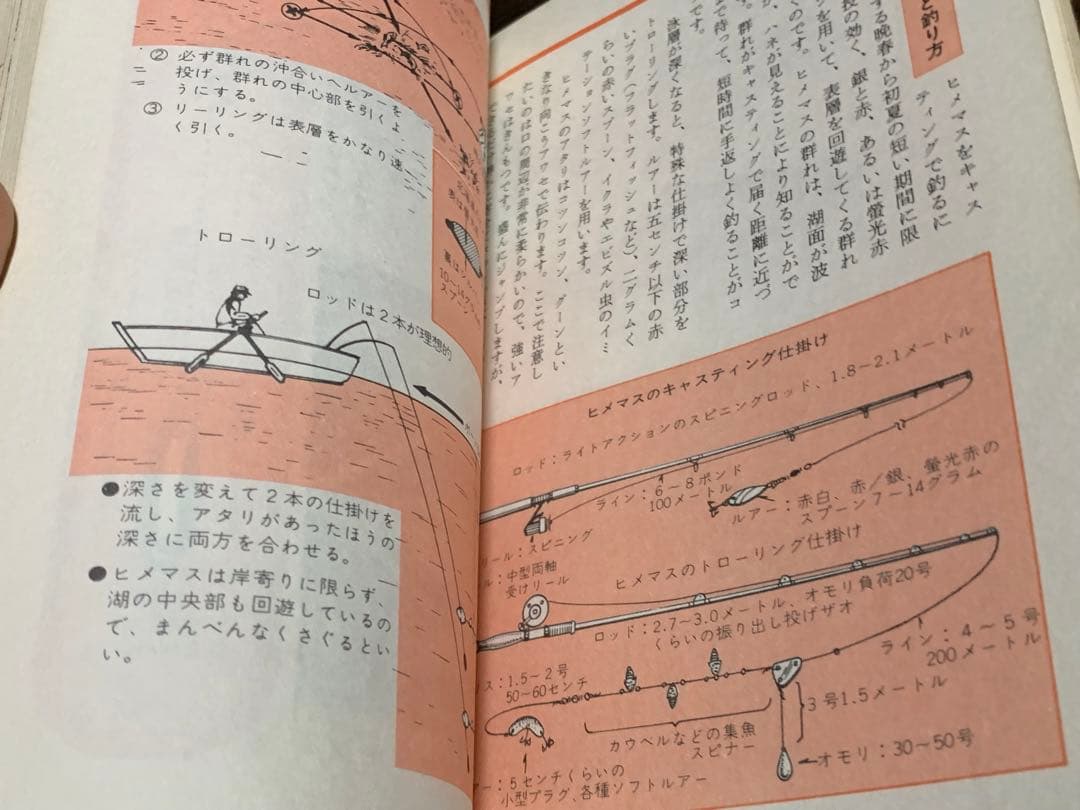 ② 必ず群れの沖合いへルアーを
投げ、群れの中心部を引くよ
うにする。
③ リーリングは表層をかなり速
く引く。
トローリング
ロッドは2本が理想的
10〜14グ
スプーン
●深さを変えて2本の仕掛けを
流し、アタリがあったほうの
深さに両方を合わせる。
●ヒメマスは岸寄りに限らず、
湖の中央部も回遊しているの
で、まんべんなくさぐるとい
い。
と釣り方
ヒメマスをキャス
ティングで釣るに
する晩春から初夏の短い期間に限
投の効く、銀と赤、あるいは螢光赤
を用いて、表層を回遊してくる群れ
くのです。ヒメマスの群れは、湖面が波
、ハネが見えることにより知ることがで
す。群れがキャスティングで届く距離に近づ
まで待って、短時間に手返しよく釣ることがコ
です。
泳層が深くなると、特殊な仕掛けで深い部分を
トローリングします。ルアーは五センチ以下の赤
いプラグ(フラットフィッシュなど)、二グラムく
らいの赤いスプーン、イクラやエビズル虫のイミ
テーションソフトルアーを用います。
ヒメマスのアタリはコツンコツン、グーンとい
きなり向こうアワセで伝わります。ここで注意し
たいのは口の周辺が非常に柔らかいので、強いア
ワセはきんもつです。盛んにジャンプしますが、
ヒメマスのキャスティング仕掛け
ロッド:ライトアクションのスピニングロッド、1.8〜2.1メートル
ライン:6〜8ポンド
100メートル
ルアー:赤白、赤/銀、螢光赤の
スプーン7〜14グラム
リール:スピニング
ヒメマスのトローリング仕掛け
ル:中型両軸
受けリール
ロッド:2.7〜3.0メートル、オモリ負荷20号
くらいの振り出し投げザオ
ライン:4〜5号
200メートル
ス:1.5〜2号
50〜60センチ
カウベルなどの集魚
スピナー
3号1.5メートル
オモリ:30〜50号
アー:5センチくらいの
小型プラグ、各種ソフトルアー